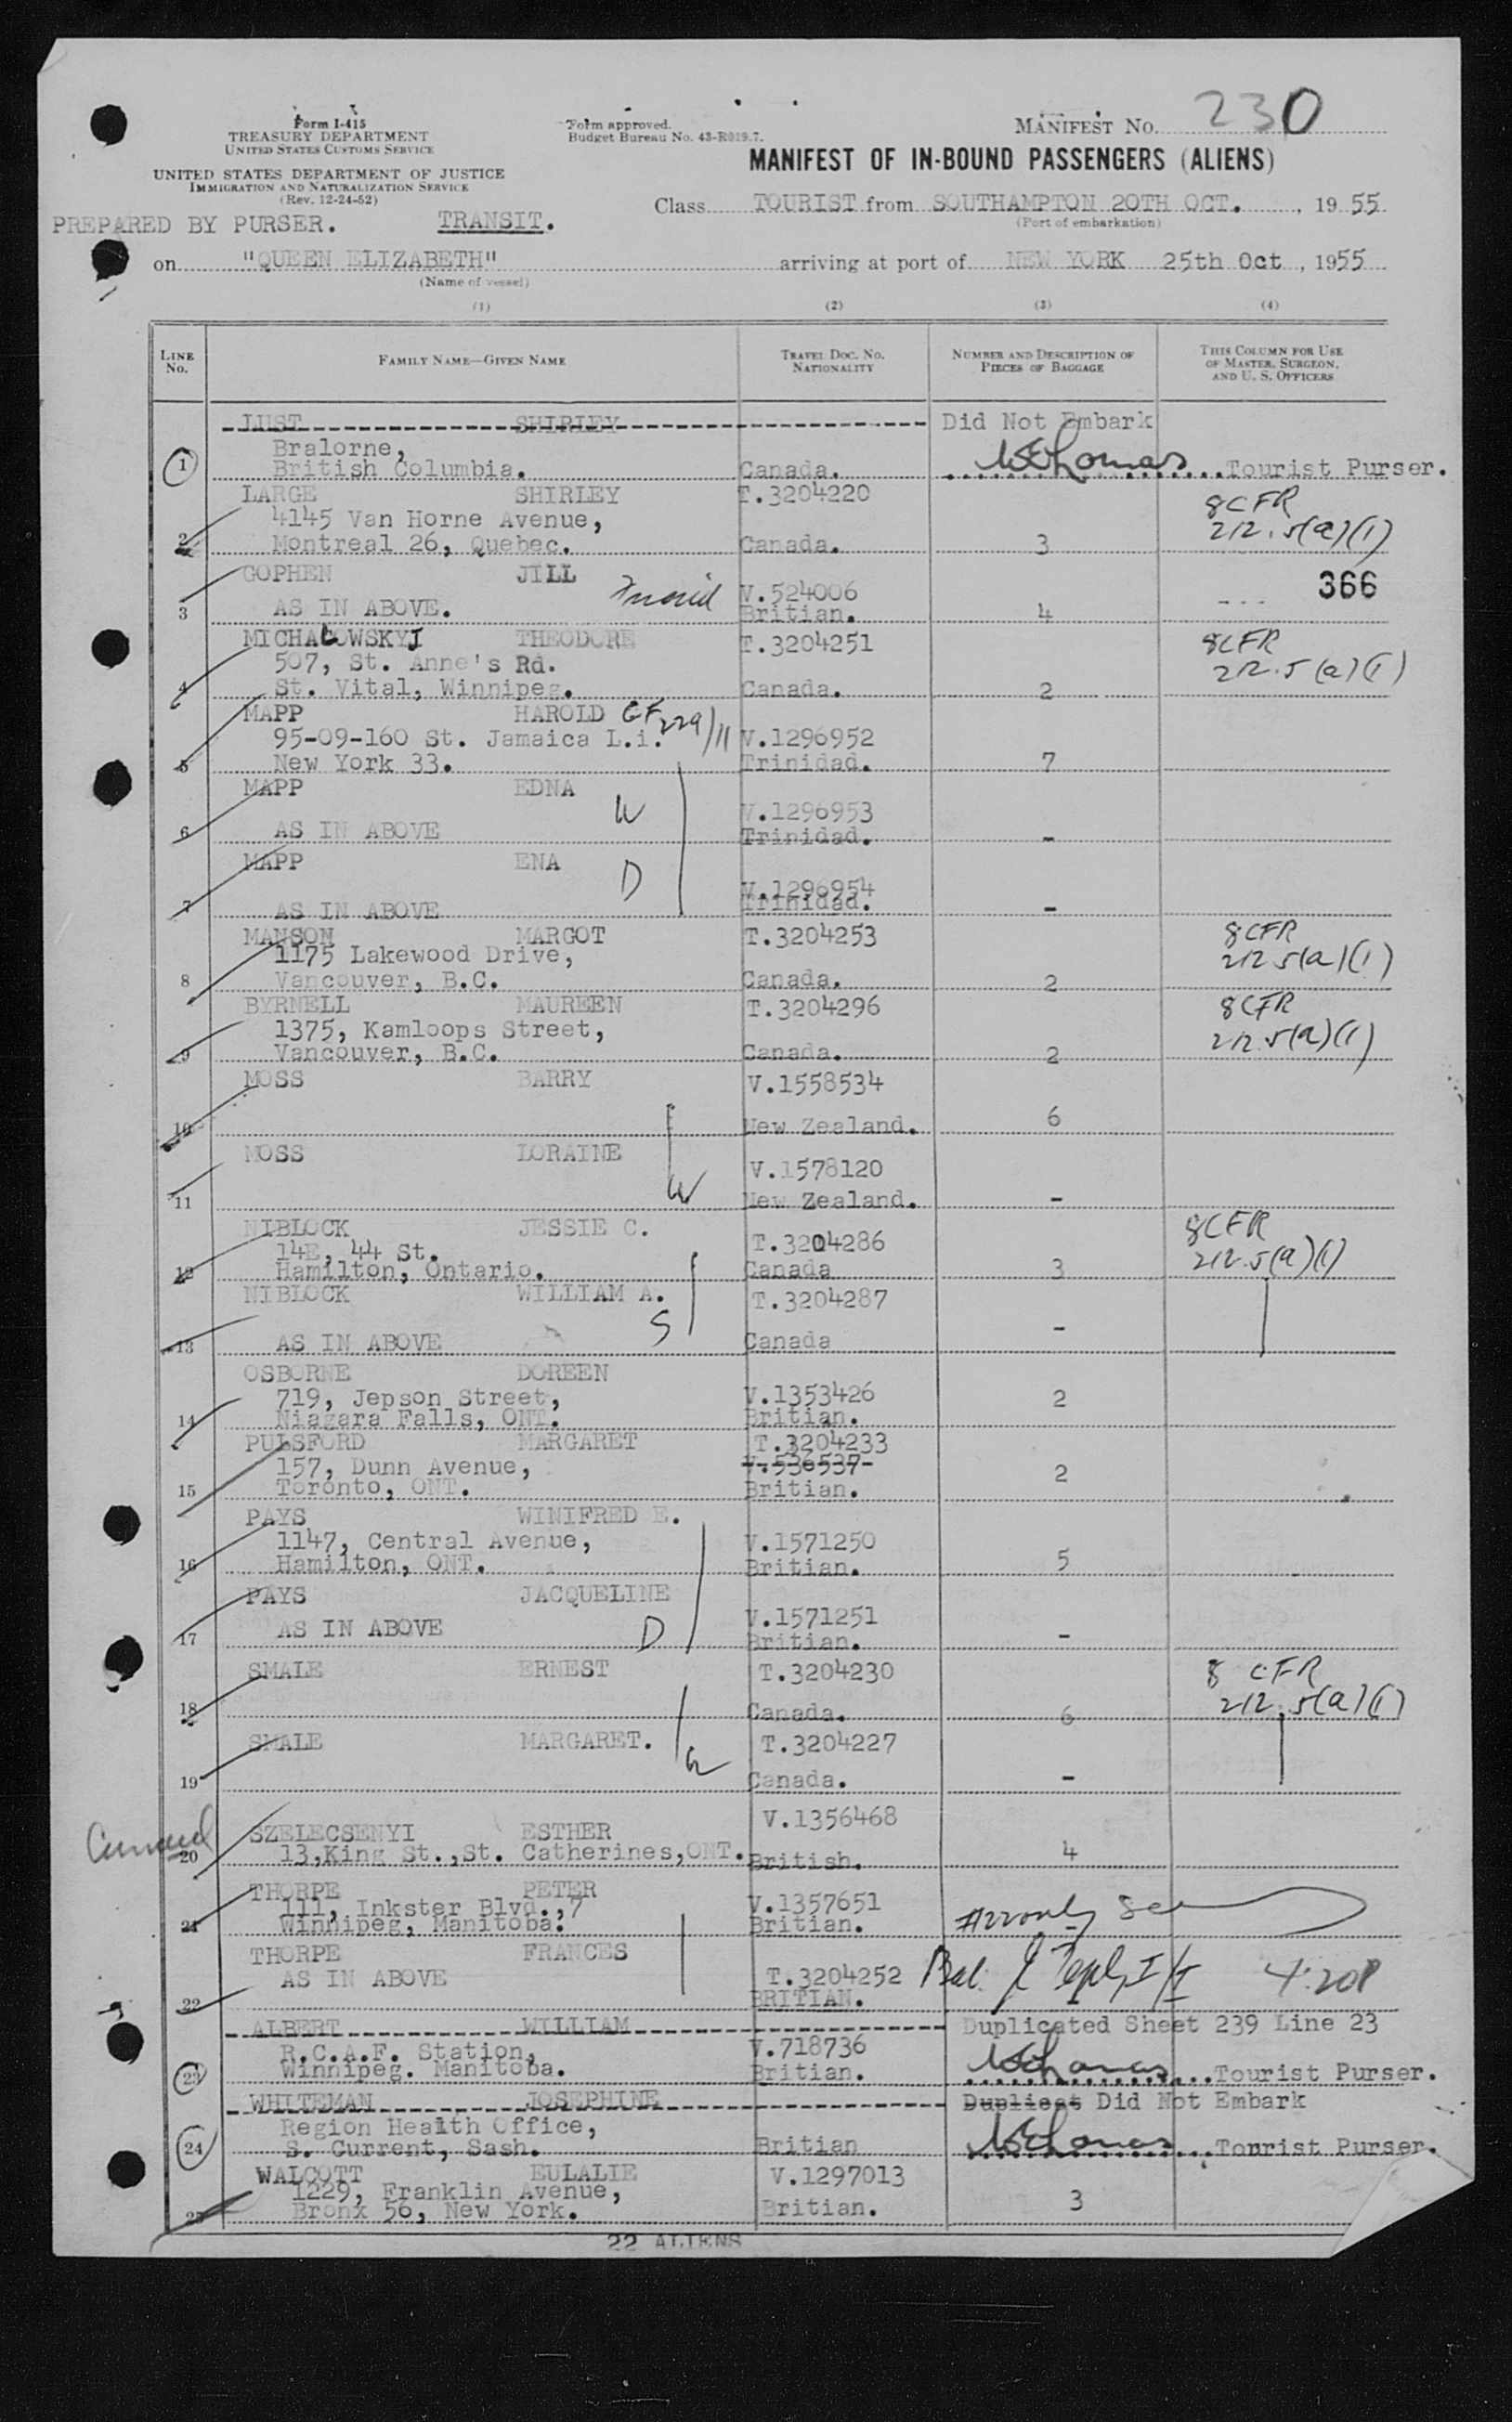 230
Form I-415
TREASURY DEPARTMENT
UNITED STATES CUSTOMS SERVICE
Form approved.
Budget Bureau No. 43-R019.7.
MANIFEST No.
MANIFEST OF IN-BOUND PASSENGERS (ALIENS)
UNITED STATES DEPARTMENT OF JUSTICE
IMMIGRATION AND NATURALIZATION SERVICE
(Rev. 12-24-52)
Class TOURIST from SOUTHAMPTON 20TH OCT. , 1955
(Port of embarkation)
PREPARED BY PURSER. TRANSIT.
on "QUEEN ELIZABETH" arriving at port of NEW YORK 25th Oct , 1955
(Name of vessel)
(1) (2) (3) (4)
LINE No. FAMILY NAME—GIVEN NAME TRAVEL DOC. NO. NATIONALITY NUMBER AND DESCRIPTION OF PIECES OF BAGGAGE THIS COLUMN FOR USE OF MASTER, SURGEON, AND U. S. OFFICERS
LUST SHIRLEY Did Not Embark
Bralorne,
1 British Columbia. Canada. WEThomas Tourist Purser.
LARGE SHIRLEY T.3204220 8CFR
4145 Van Horne Avenue, 212.5(a)(1)
2 Montreal 26, Quebec. Canada. 3
GOPHEN JILL V.524006 366
3 AS IN ABOVE. Britian. 4
MICHALOWSKYJ THEODORE T.3204251 8CFR
507, St. Anne's Rd. 212.5(a)(1)
4 St. Vital, Winnipeg. Canada. 2
MAPP HAROLD CF 229/11
95-09-160 St. Jamaica L.i. V.1296952
5 New York 33. Trinidad. 7
MAPP EDNA W V.1296953
6 AS IN ABOVE Trinidad. -
MAPP ENA D V.1296954
7 AS IN ABOVE Trinidad. -
MANSON MARGOT T.3204253 8CFR
1175 Lakewood Drive, 212 5(a)(1)
8 Vancouver, B.C. Canada. 2
BYRNELL MAUREEN T.3204296 8CFR
1375, Kamloops Street, 212.5(a)(1)
9 Vancouver, B.C. Canada. 2
MOSS BARRY V.1558534
10 New Zealand. 6
MOSS LORAINE V.1578120
11 W New Zealand. -
NIBLOCK JESSIE C. T.3204286 8CFR
14E, 44 St. 212.5(a)(1)
12 Hamilton, Ontario. Canada 3
NIBLOCK WILLIAM A. T.3204287
13 AS IN ABOVE S Canada -
OSBORNE DOREEN
719, Jepson Street, V.1353426 2
14 Niagara Falls, ONT. Britian.
PULSFORD MARGARET T.3204233
157, Dunn Avenue, V.536537 2
15 Toronto, ONT. Britian.
PAYS WINIFRED E.
1147, Central Avenue, V.1571250
16 Hamilton, ONT. Britian. 5
PAYS JACQUELINE V.1571251
17 AS IN ABOVE D Britian. -
SMALE ERNEST T.3204230 8 CFR
18 Canada. 6 212.5(a)(1)
SMALE MARGARET. W T.3204227
19 Canada. -
SZELECSENYI ESTHER V.1356468
Cunard 20 13,King St.,St. Catherines,ONT. British. 4
THORPE PETER V.1357651
111, Inkster Blvd.,7
21 Winnipeg, Manitoba. Britian.
THORPE FRANCES
AS IN ABOVE T.3204252 Bal. 4:20P
22 BRITIAN.
ALBERT WILLIAM Duplicated Sheet 239 Line 23
R.C.A.F. Station, V.718736
23 Winnipeg. Manitoba. Britian. WEThomas Tourist Purser.
WHITEMAN JOSEPHINE Duplicat Did Not Embark
Region Health Office,
24 S. Current, Sash. Britian WEThomas Tourist Purser.
WALCOTT EULALIE V.1297013
1229, Franklin Avenue,
25 Bronx 56, New York. Britian. 3
22 ALIENS